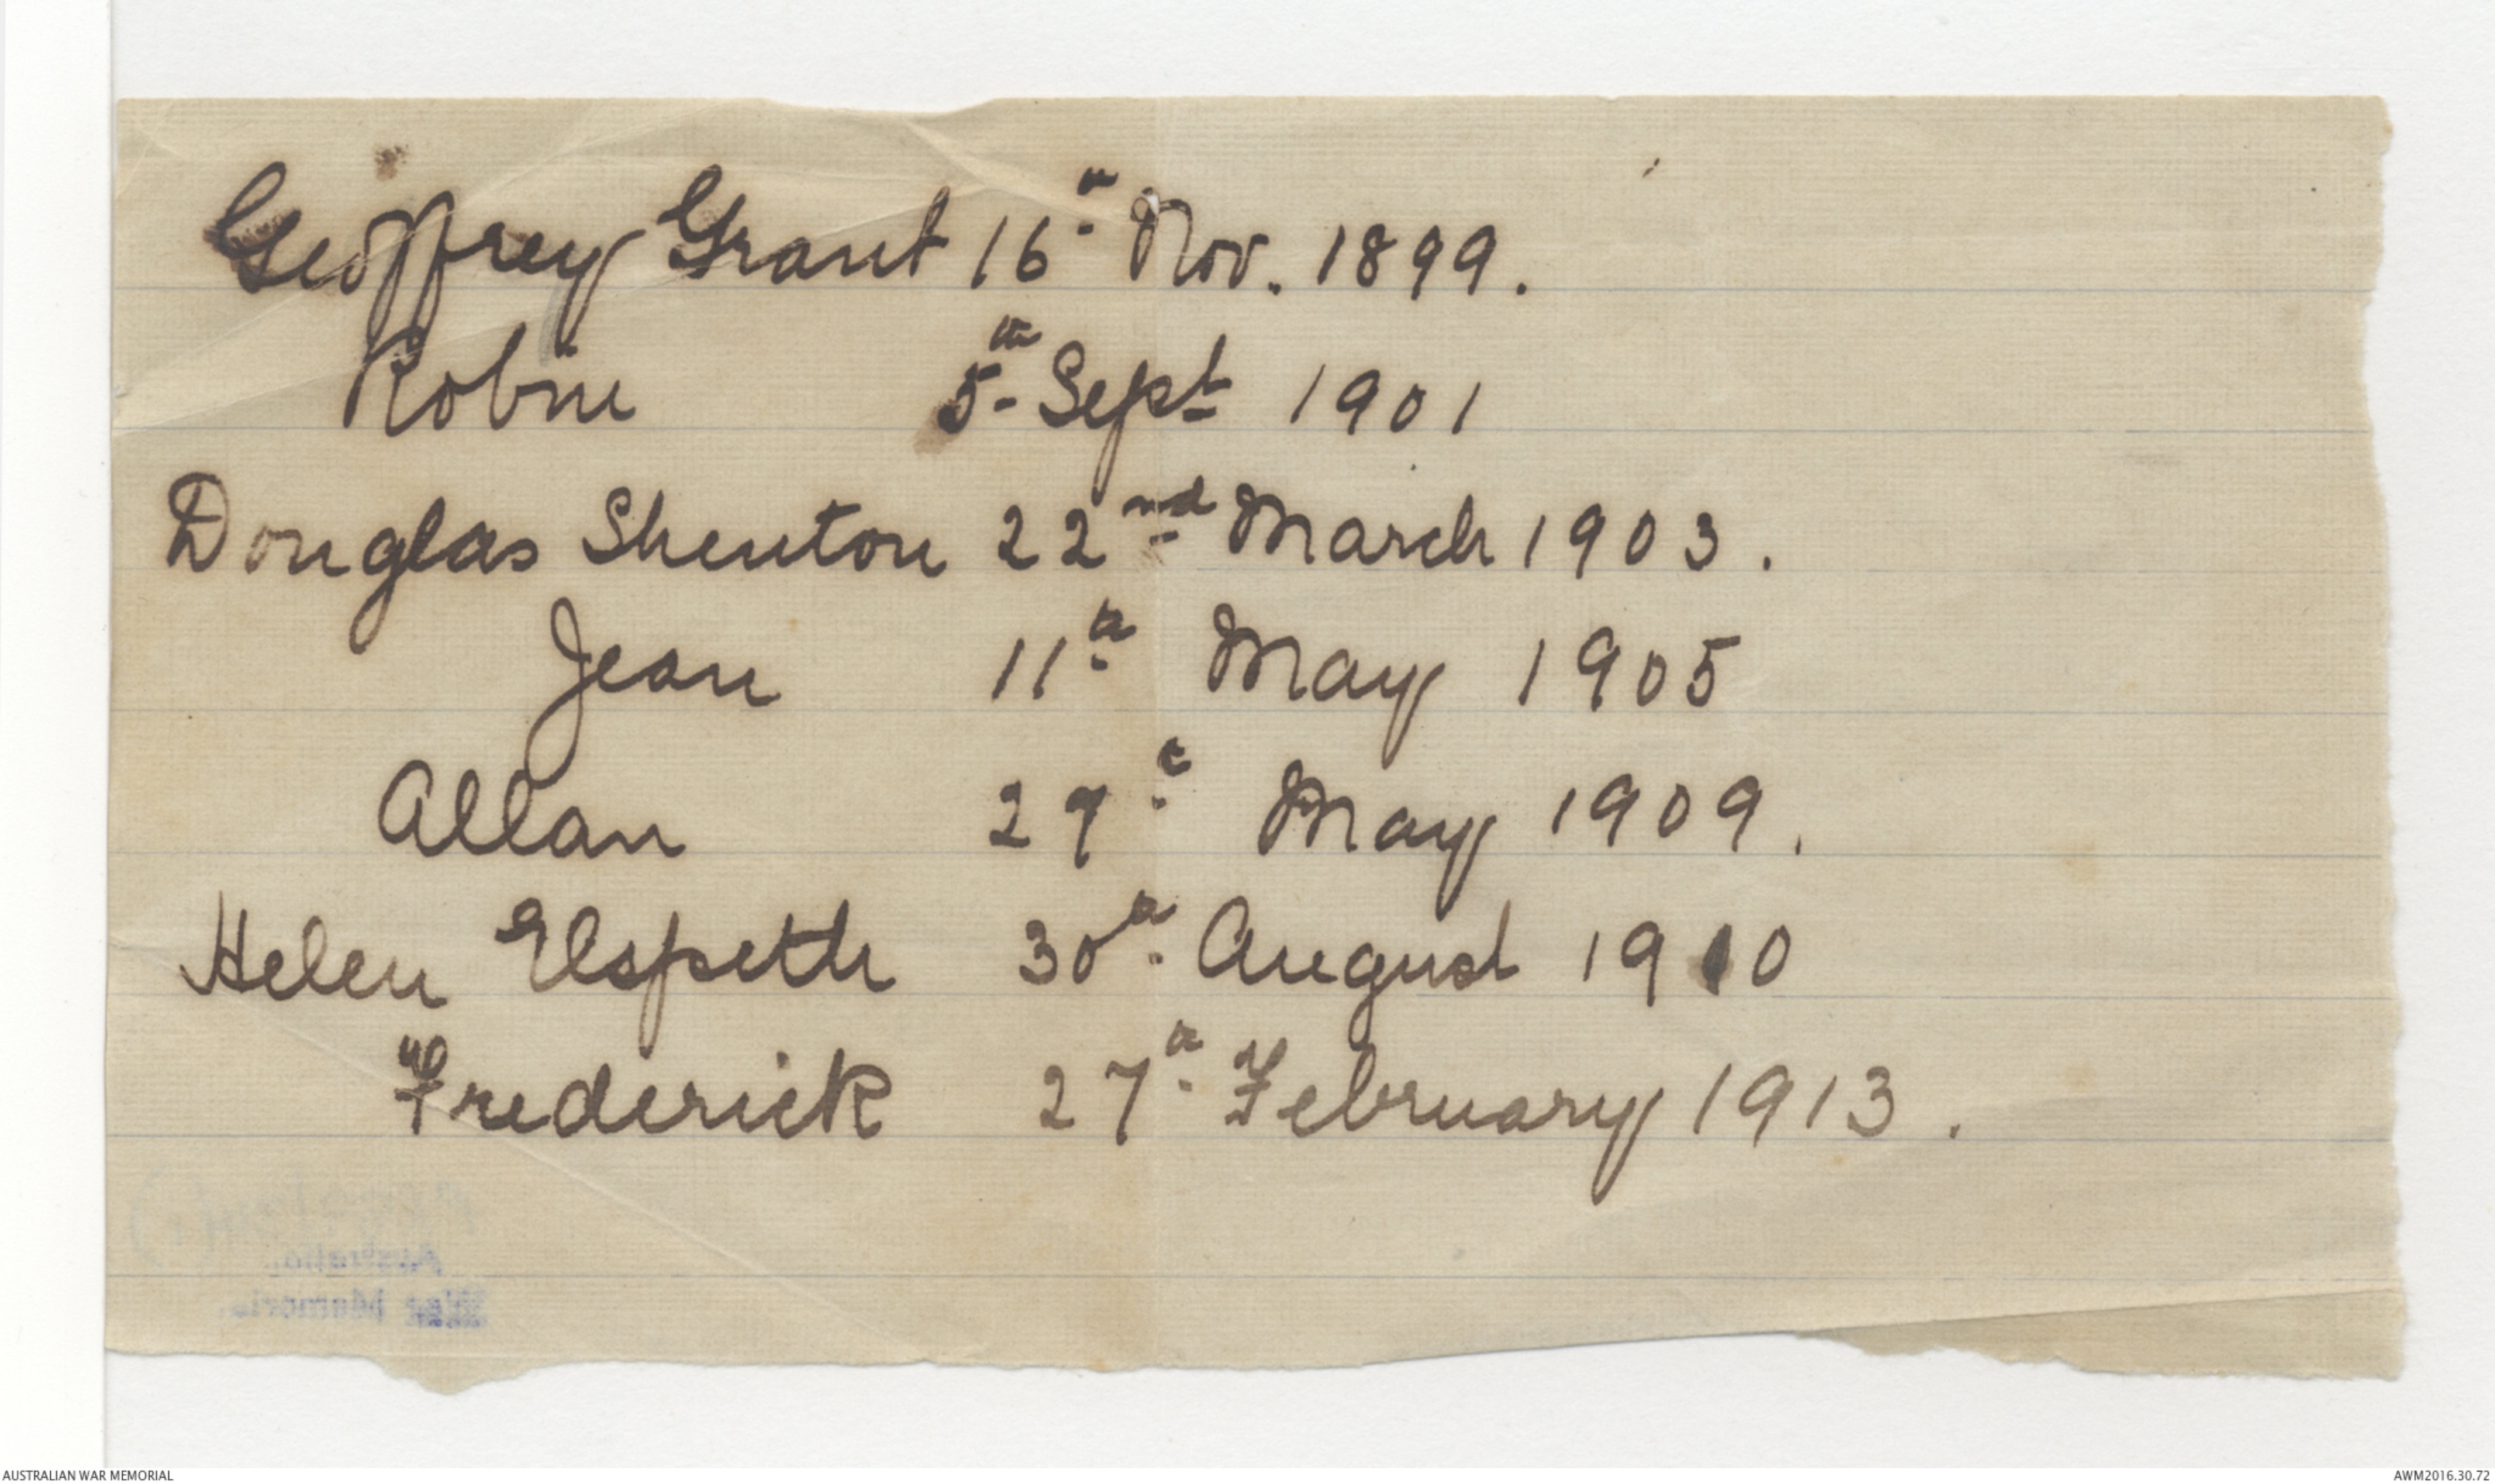 Geoffrey Grant 16th Nov. 1899.
Robin 5th Sept 1901
Douglas Shenton 22nd March 1903.
Jean 11th May 1905
Allan 29th May 1909.
Helen Elspeth 30th August 1910
Frederick 27th February 1913.
Australian
War Memorial
AUSTRALIAN WAR MEMORIAL
AWM2016.30.72